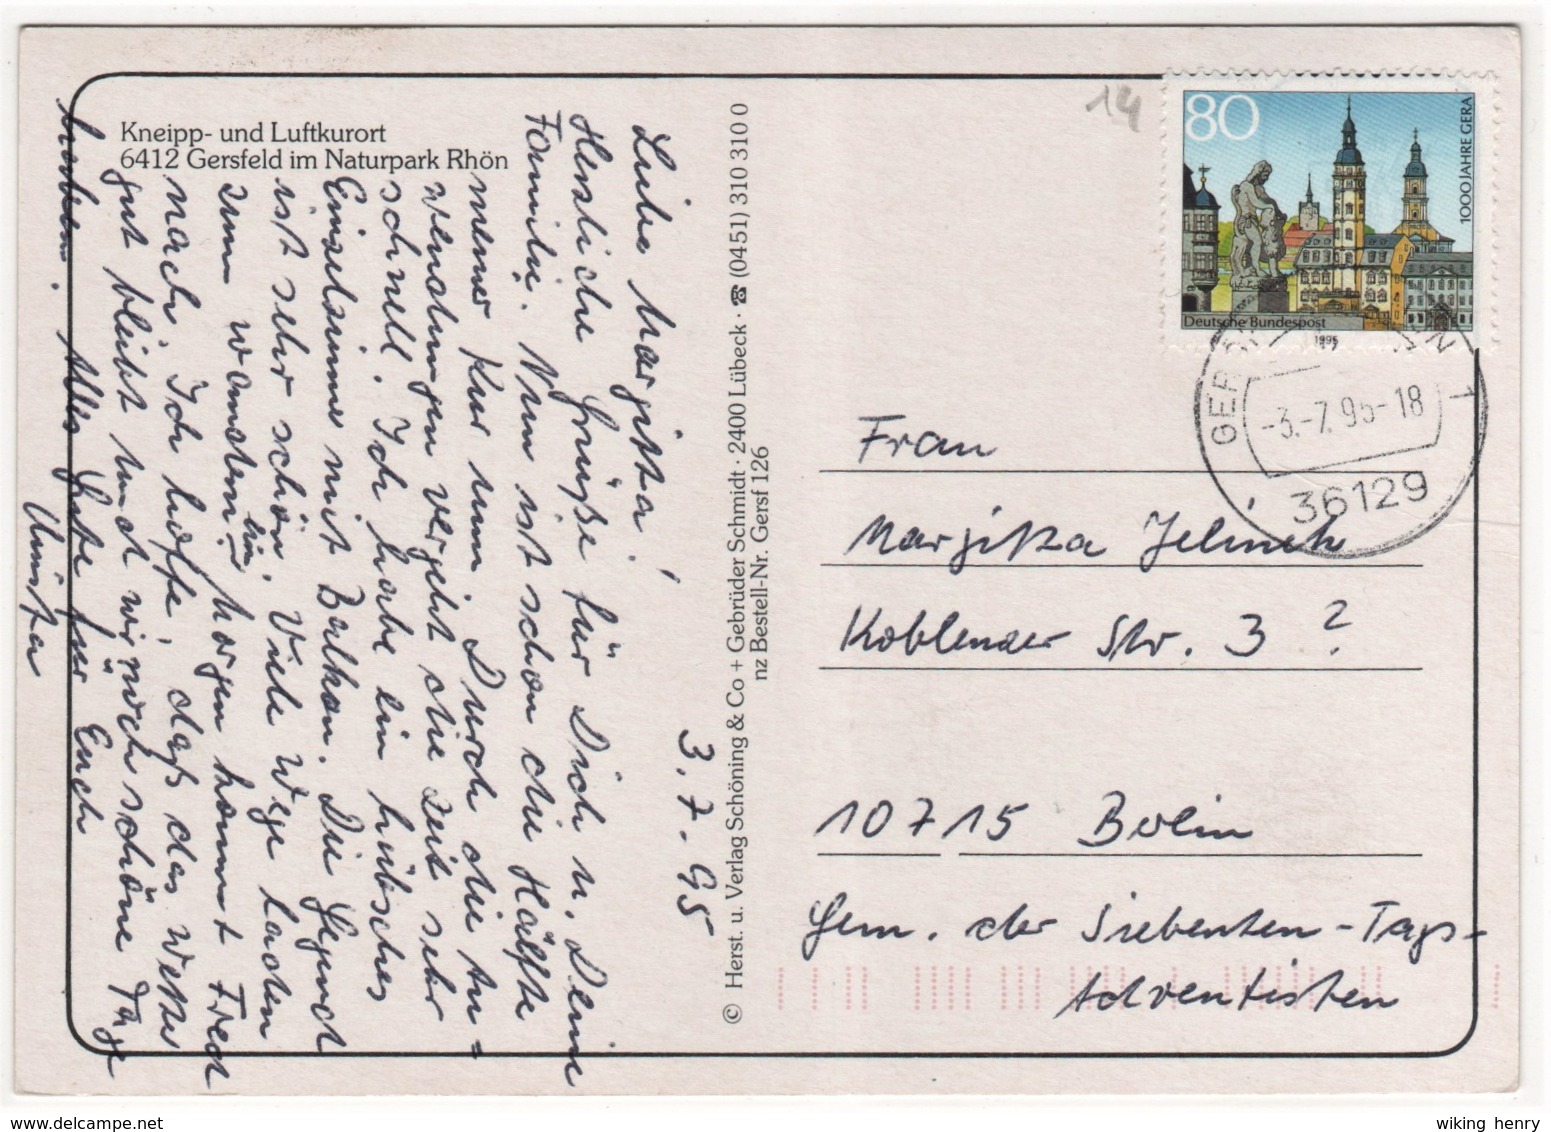 Kneipp- und Luftkurort
6412 Gersfeld im Naturpark Rhön
14
80
1000 JAHRE GERA
Deutsche Bundespost
1995
-3.-7.95-18
1
36129
3.7.95
Liebe Margitta!
Herzliche Grüße für Dich u. Deine
Familie. Nun ist schon die Hälfte
meiner Kur um. Durch die An=
wendungen vergeht die Zeit sehr
schnell. Ich habe ein hübsches
Einzelzimmer mit Balkon. Die Gegend
ist sehr schön. Viele Wege laden
zum wandern hin. Morgen kommt Fred
nach. Ich hoffe, daß das Wetter
gut bleibt und wir noch schöne Tage
haben. Alles Gute für Euch
Christa
© Herst. u. Verlag Schöning & Co + Gebrüder Schmidt · 2400 Lübeck · ☎ (0451) 310 310 0
nz Bestell-Nr. Gersf 126
Frau
Margitta Jelinek
Koblenzer Str. 3 ?
10715 Berlin
Gem. der Siebenten-Tags-
Adventisten
wiking henry